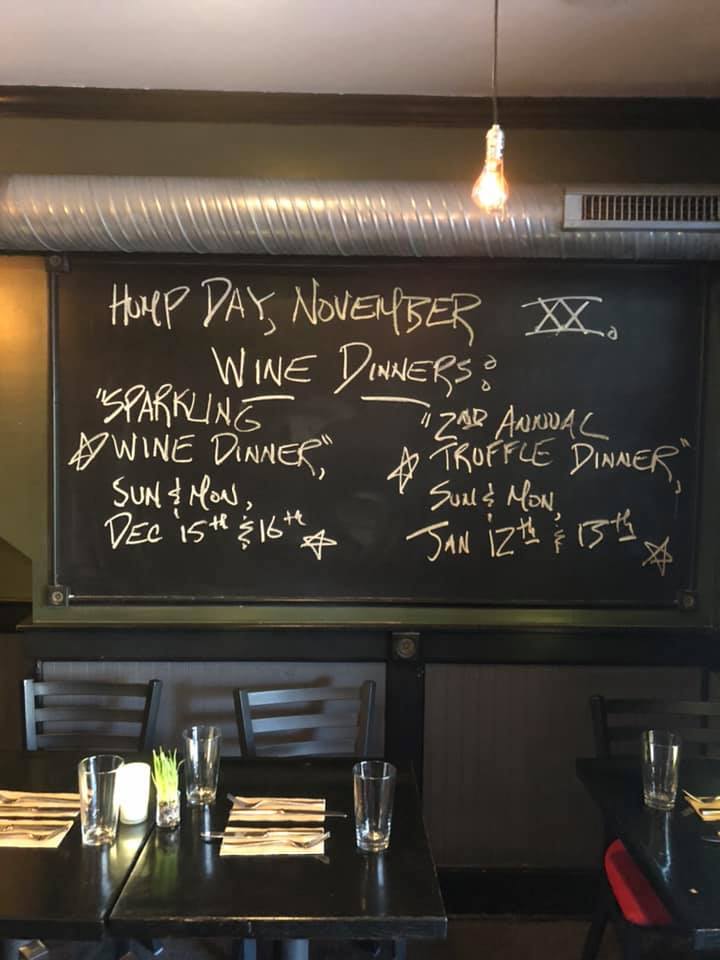 HUMP DAY, NOVEMBER XX.
WINE DINNERS:
"SPARKLING
WINE DINNER",
SUN & MON,
DEC 15th & 16th
"2ND ANNUAL
TRUFFLE DINNER",
SUN & MON,
JAN 12th & 13th